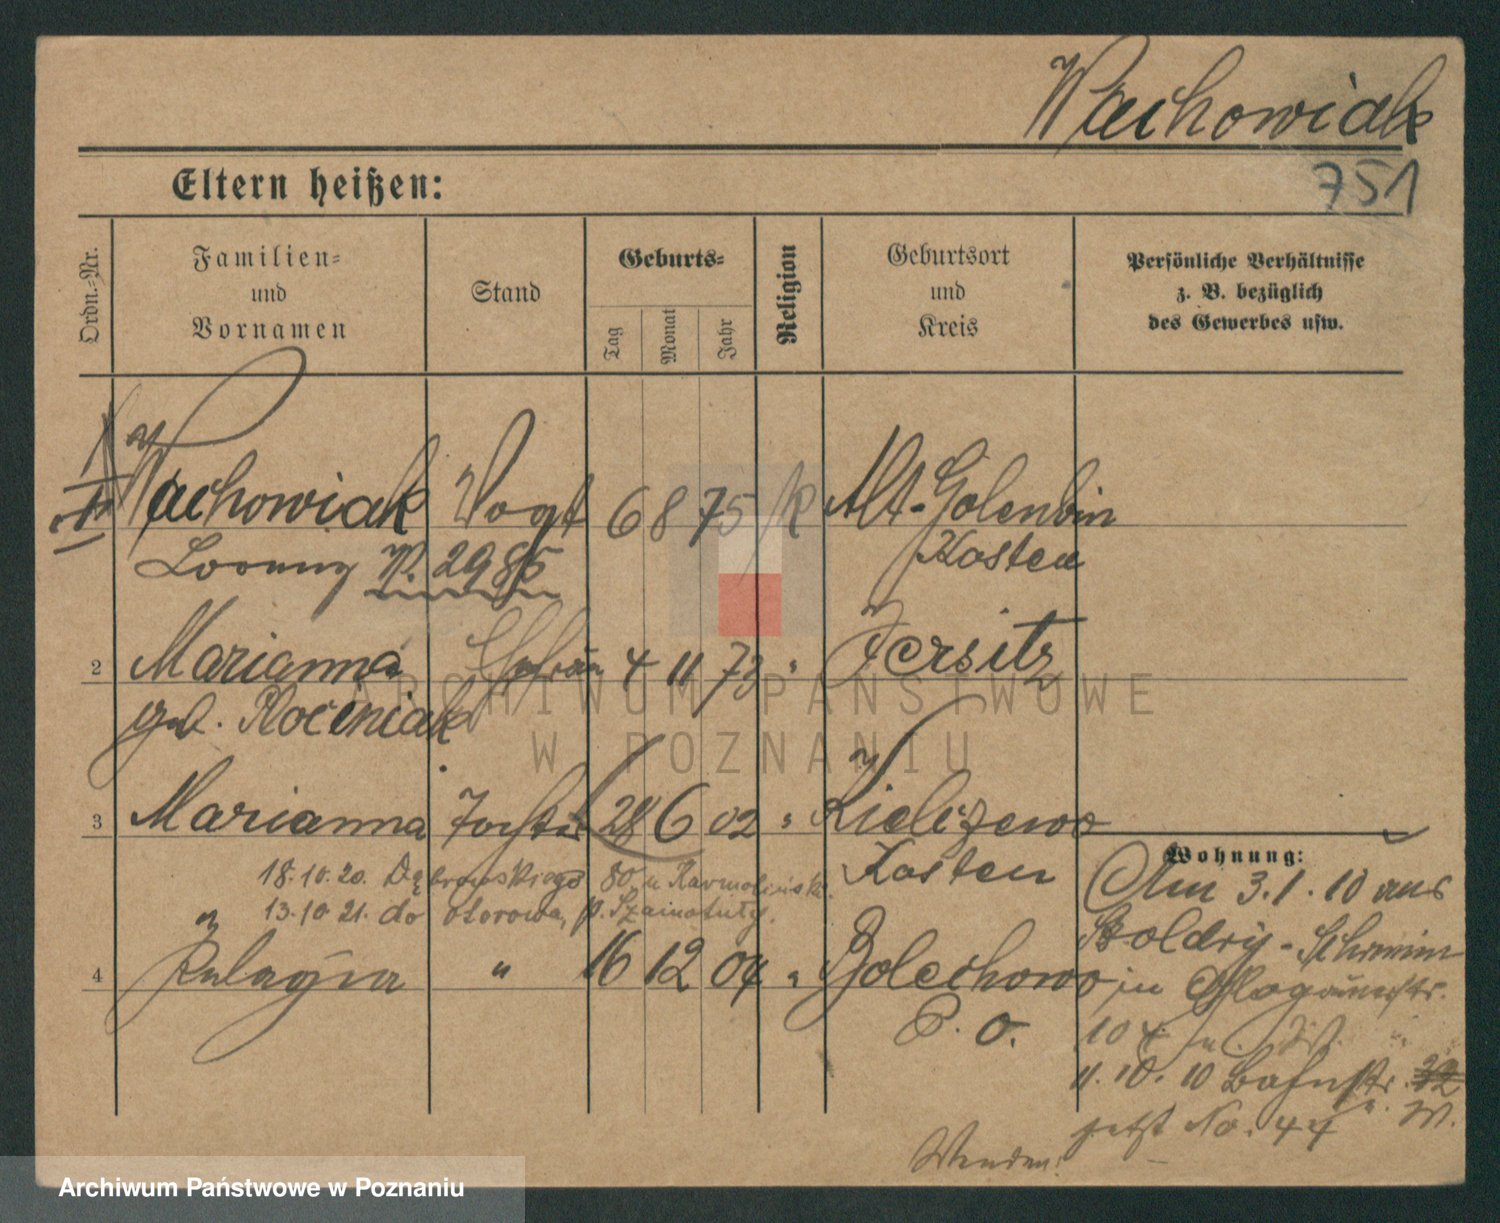 Wachowiak
751
Eltern heißen:
Ordn.-Nr.
Familien-
und
Vornamen
Stand
Geburts-
Tag
Monat
Jahr
Religion
Geburtsort
und
Kreis
Persönliche Verhältnisse
z. B. bezüglich
des Gewerbes usw.
Wachowiak Vogt 6 8 75 k Alt-Golembin
Lorenz 2985 Kosten
2 Marianna 4 11 73 " Jersitz
geb. Rociniak
3 Marianna Tochter 28 6 02 " Kielczewo
Kosten
18.10.20. Dąbrowskiego 80
13.10.21. do Otorowa, p. Szamotuły.
4 Pelagia " 16 12 04 " Bolechowo
P. O.
Wohnung:
Am 3.1.10 aus
Schrimm
in Glogauerstr.
104
11.10.10 Bahnstr. 32
jetzt No. 44 W.
Wenden!
ARCHIWUM PAŃSTWOWE
W POZNANIU
Archiwum Państwowe w Poznaniu